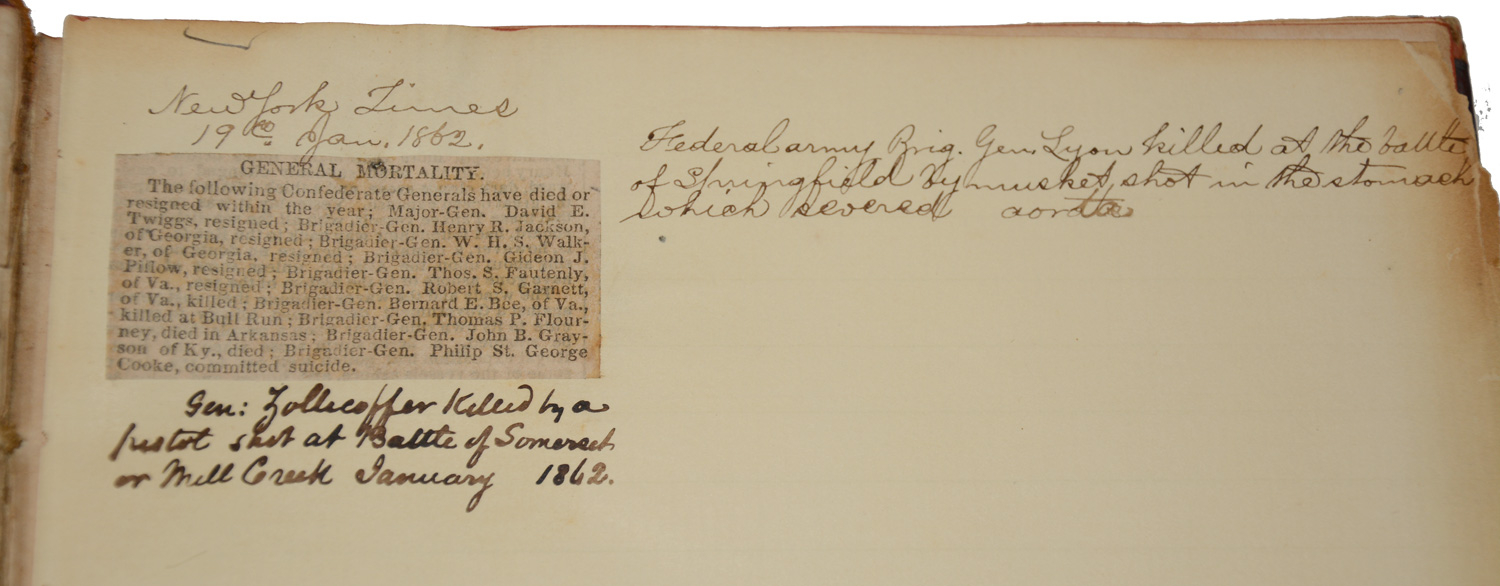 New York Times
19th Jan. 1862.
GENERAL MORTALITY.
The following Confederate Generals have died or
resigned within the year; Major-Gen. David E.
Twiggs, resigned; Brigadier-Gen. Henry R. Jackson,
of Georgia, resigned; Brigadier-Gen. W. H. S. Walk-
er, of Georgia, resigned; Brigadier-Gen. Gideon J.
Pillow, resigned; Brigadier-Gen. Thos. S. Fautenly,
of Va., resigned; Brigadier-Gen. Robert S. Garnett,
of Va., killed; Brigadier-Gen. Bernard E. Bee, of Va.,
killed at Bull Run; Brigadier-Gen. Thomas P. Flour-
ney, died in Arkansas; Brigadier-Gen. John B. Gray-
son of Ky., died; Brigadier-Gen. Philip St. George
Cooke, committed suicide.
Gen: Zollicoffer Killed by a
pistol shot at Battle of Somerset
or Mill Creek January 1862.
Federal army Brig. Gen. Lyon killed at the battle
of Springfield by musket shot in the stomach
which severed aorta